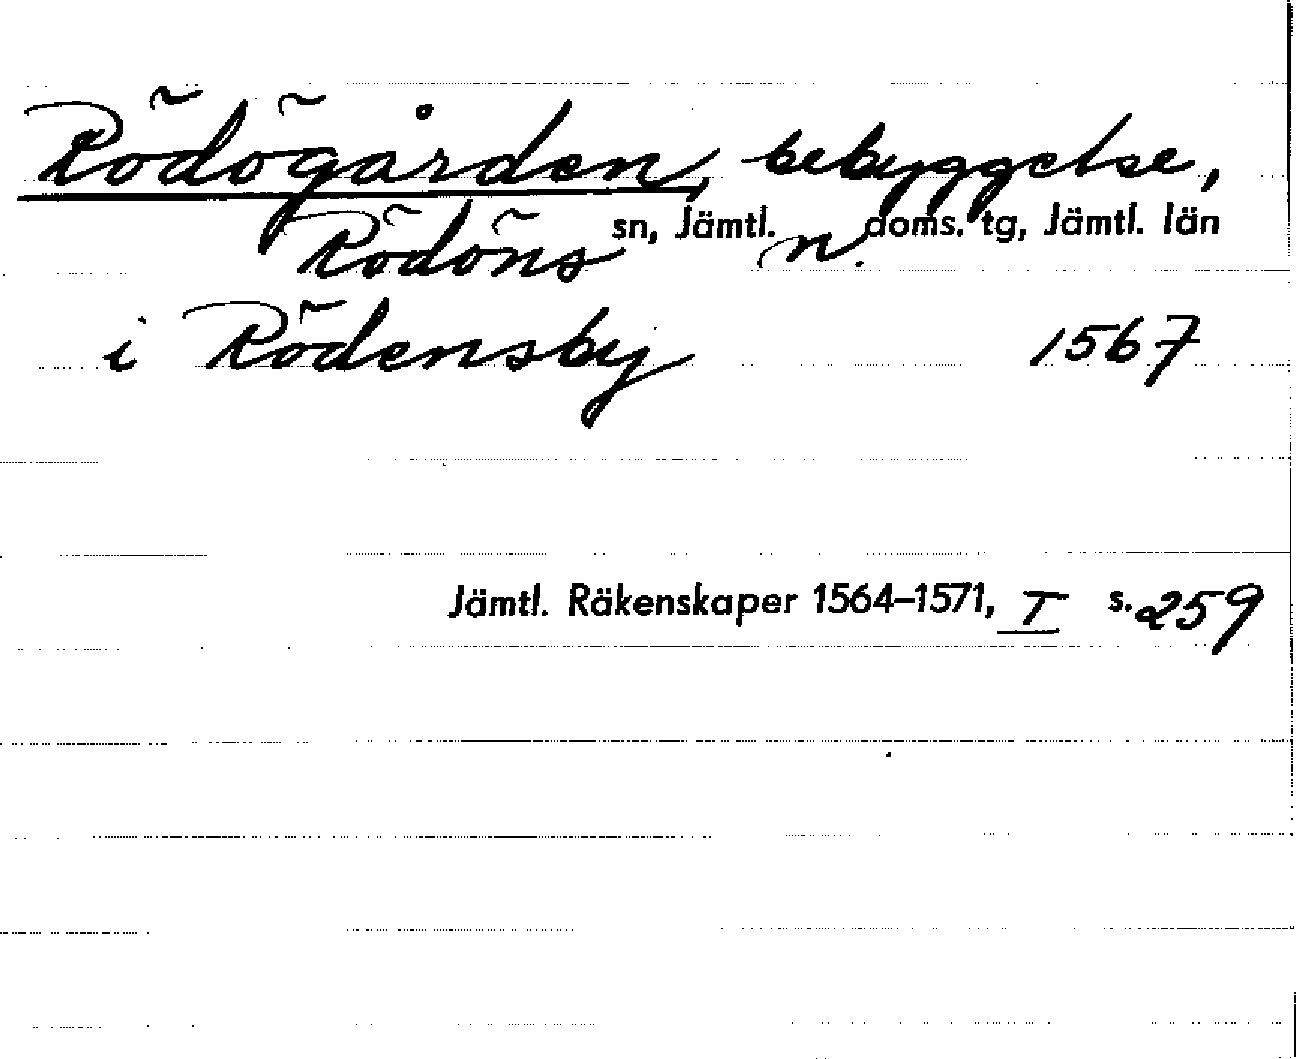 Rödögården, bebyggelse,
Rödöns sn, Jämtl. n. doms. tg, Jämtl. län
i Rödensby 1567
Jämtl. Räkenskaper 1564–1571, I s. 259